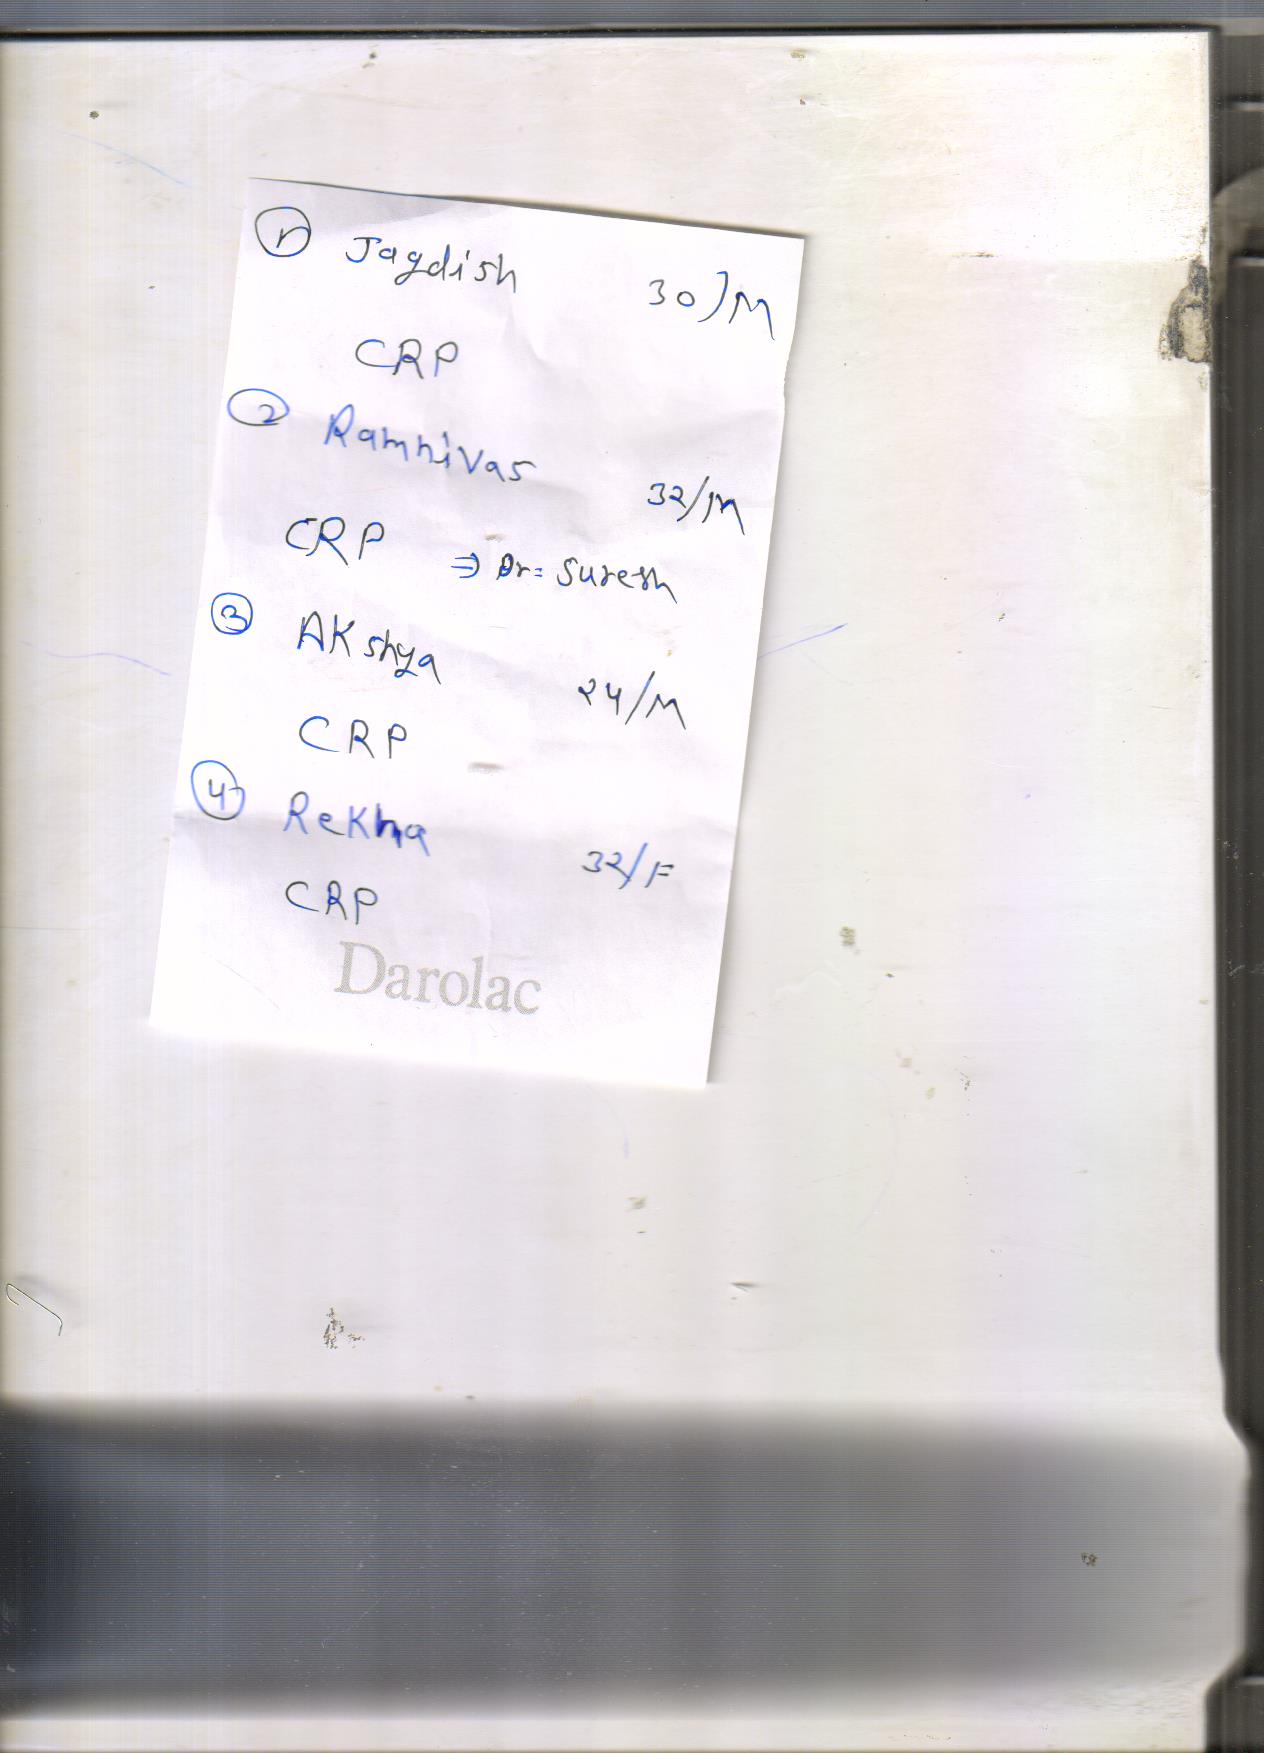 1 Jagdish 30/M
CRP
2 Ramnivas 32/M
CRP ⇒ Dr= Suresh
3 AKshya 24/M
CRP
4 Rekha 32/F
CRP
Darolac